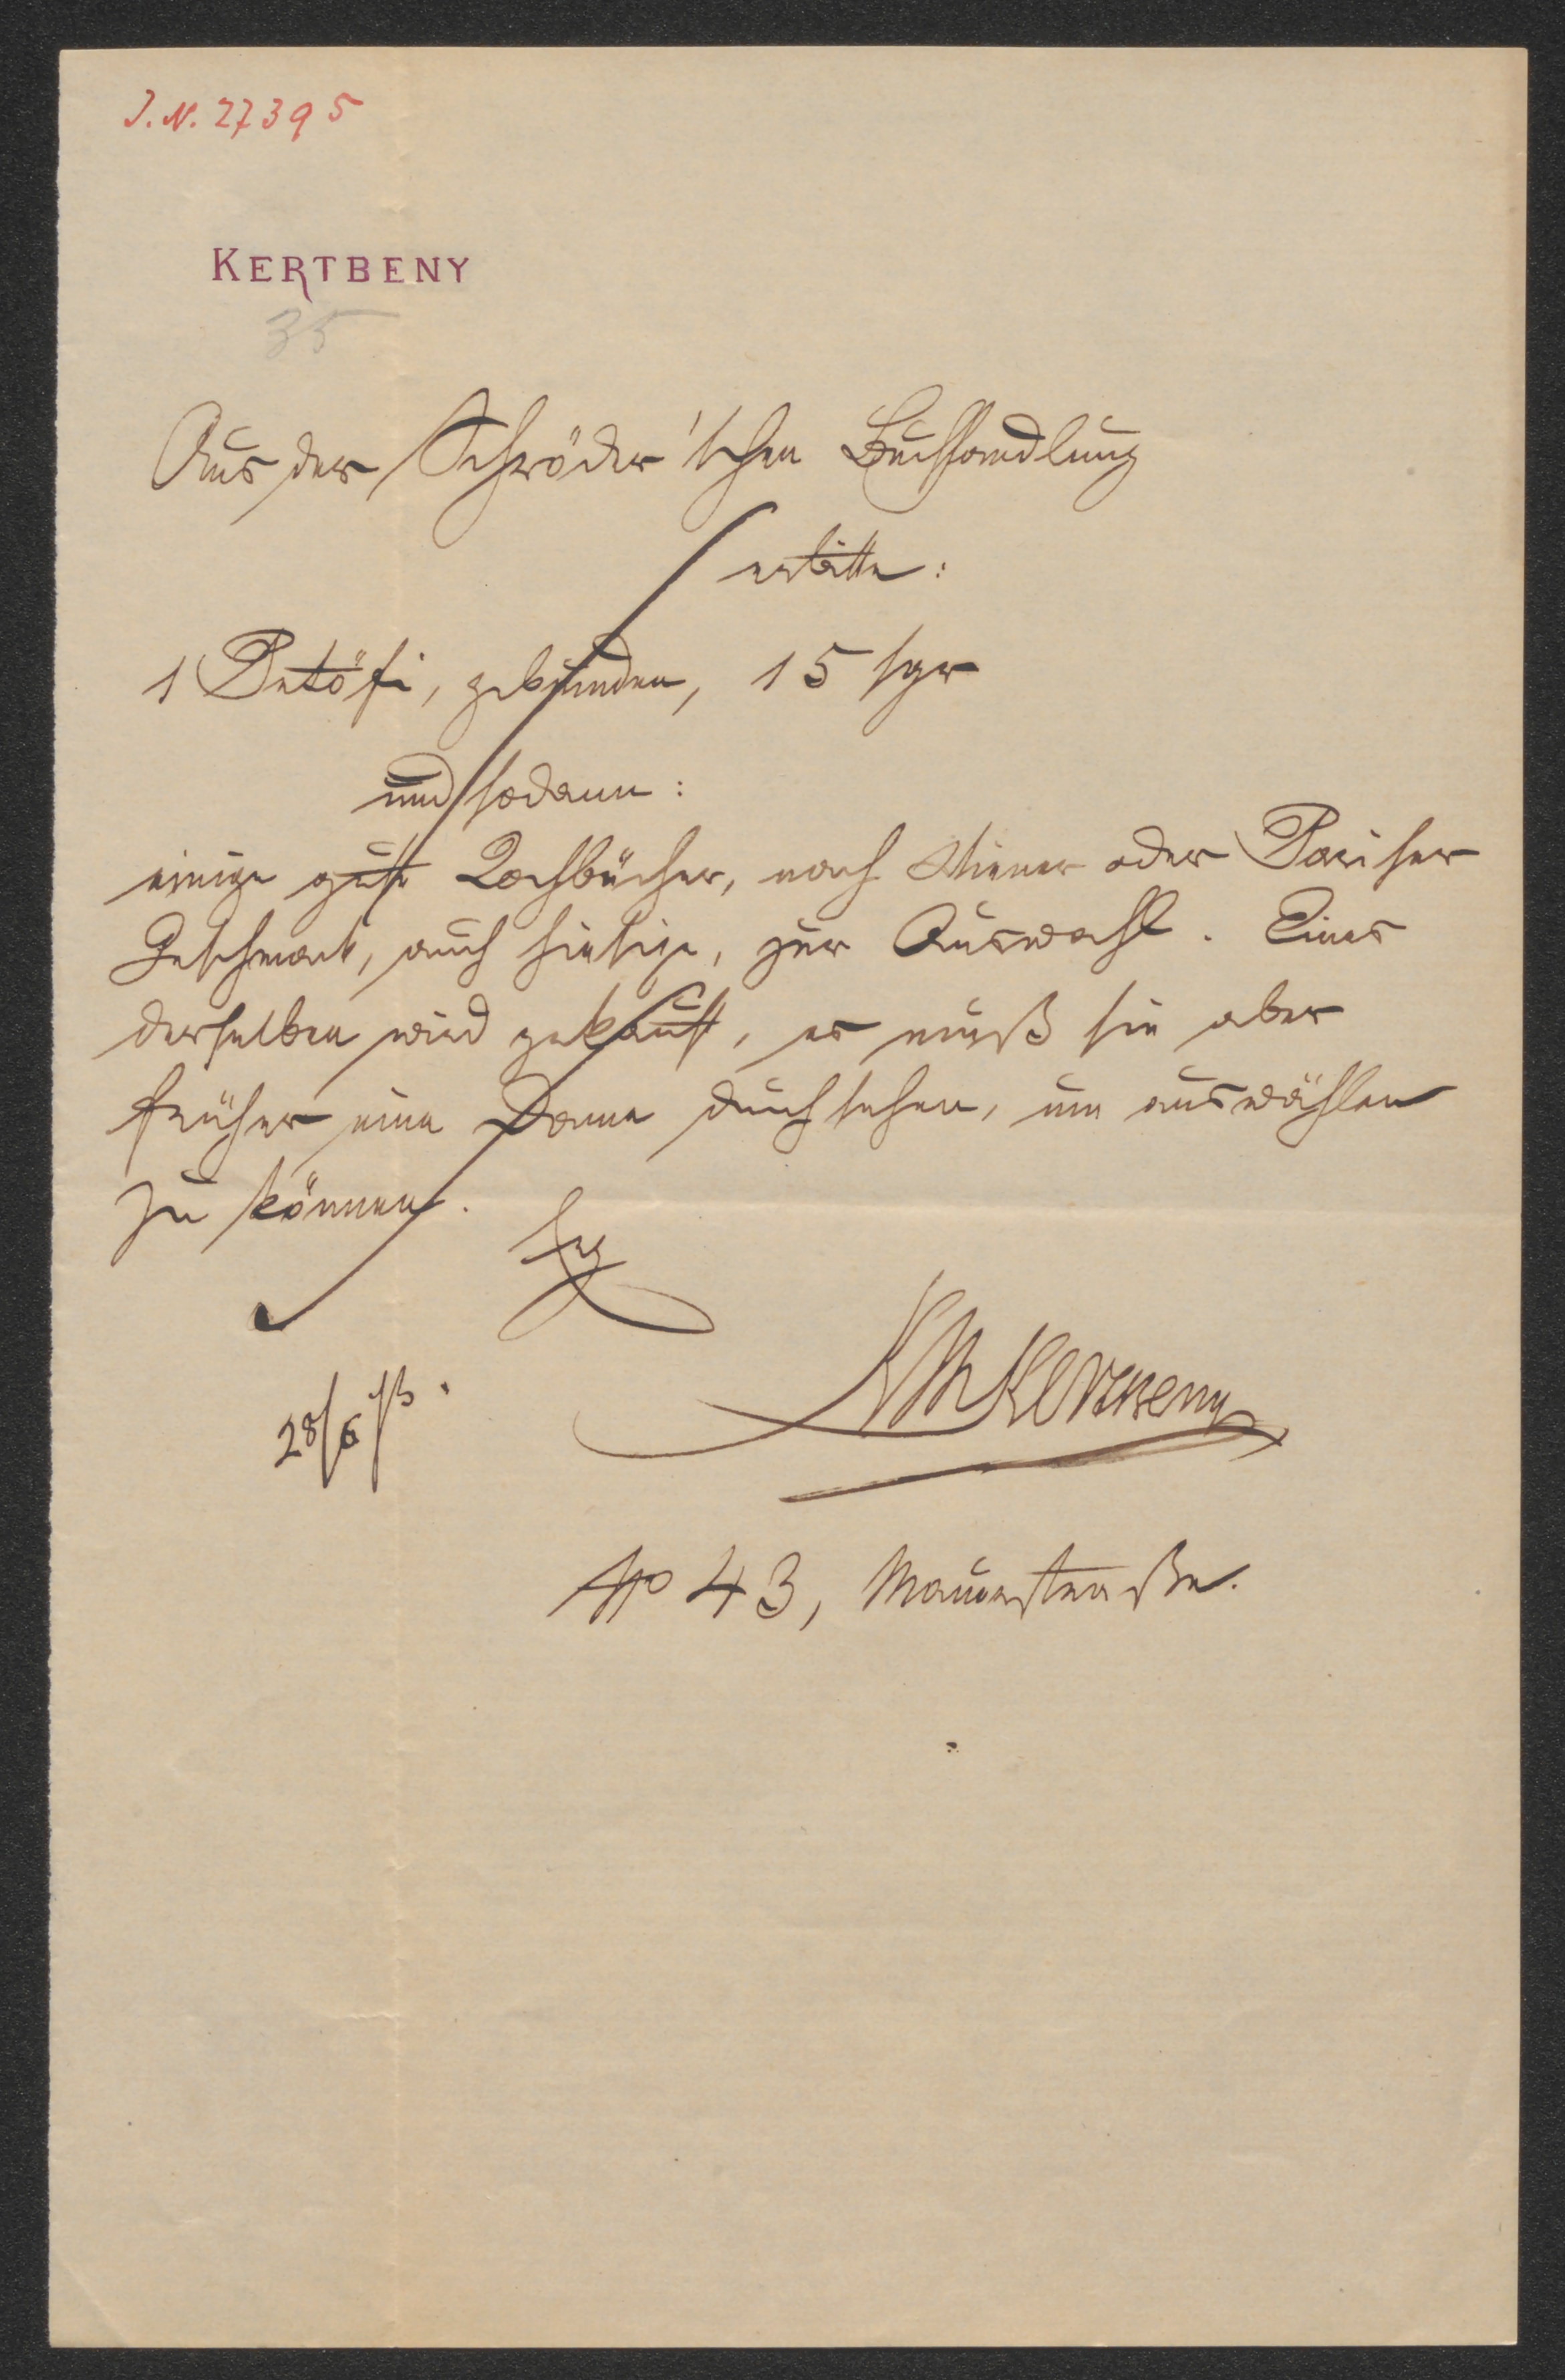 J.N. 27395
KERTBENY
35
Aus der Schröder'schen Buchhandlung
erbitte:
1 Petöfi, gebunden, 15 sgr
und sodann:
einige gute Kochbücher, nach Wiener oder Pariser
Geschmack, auch hiesige, zur Auswahl. Eines
derselben wird gekauft, es muß sie aber
früher eine Dame durchsehen, um auswählen
zu können.
KMKertbeny
28/6 73.
No 43, Mauerstraße.